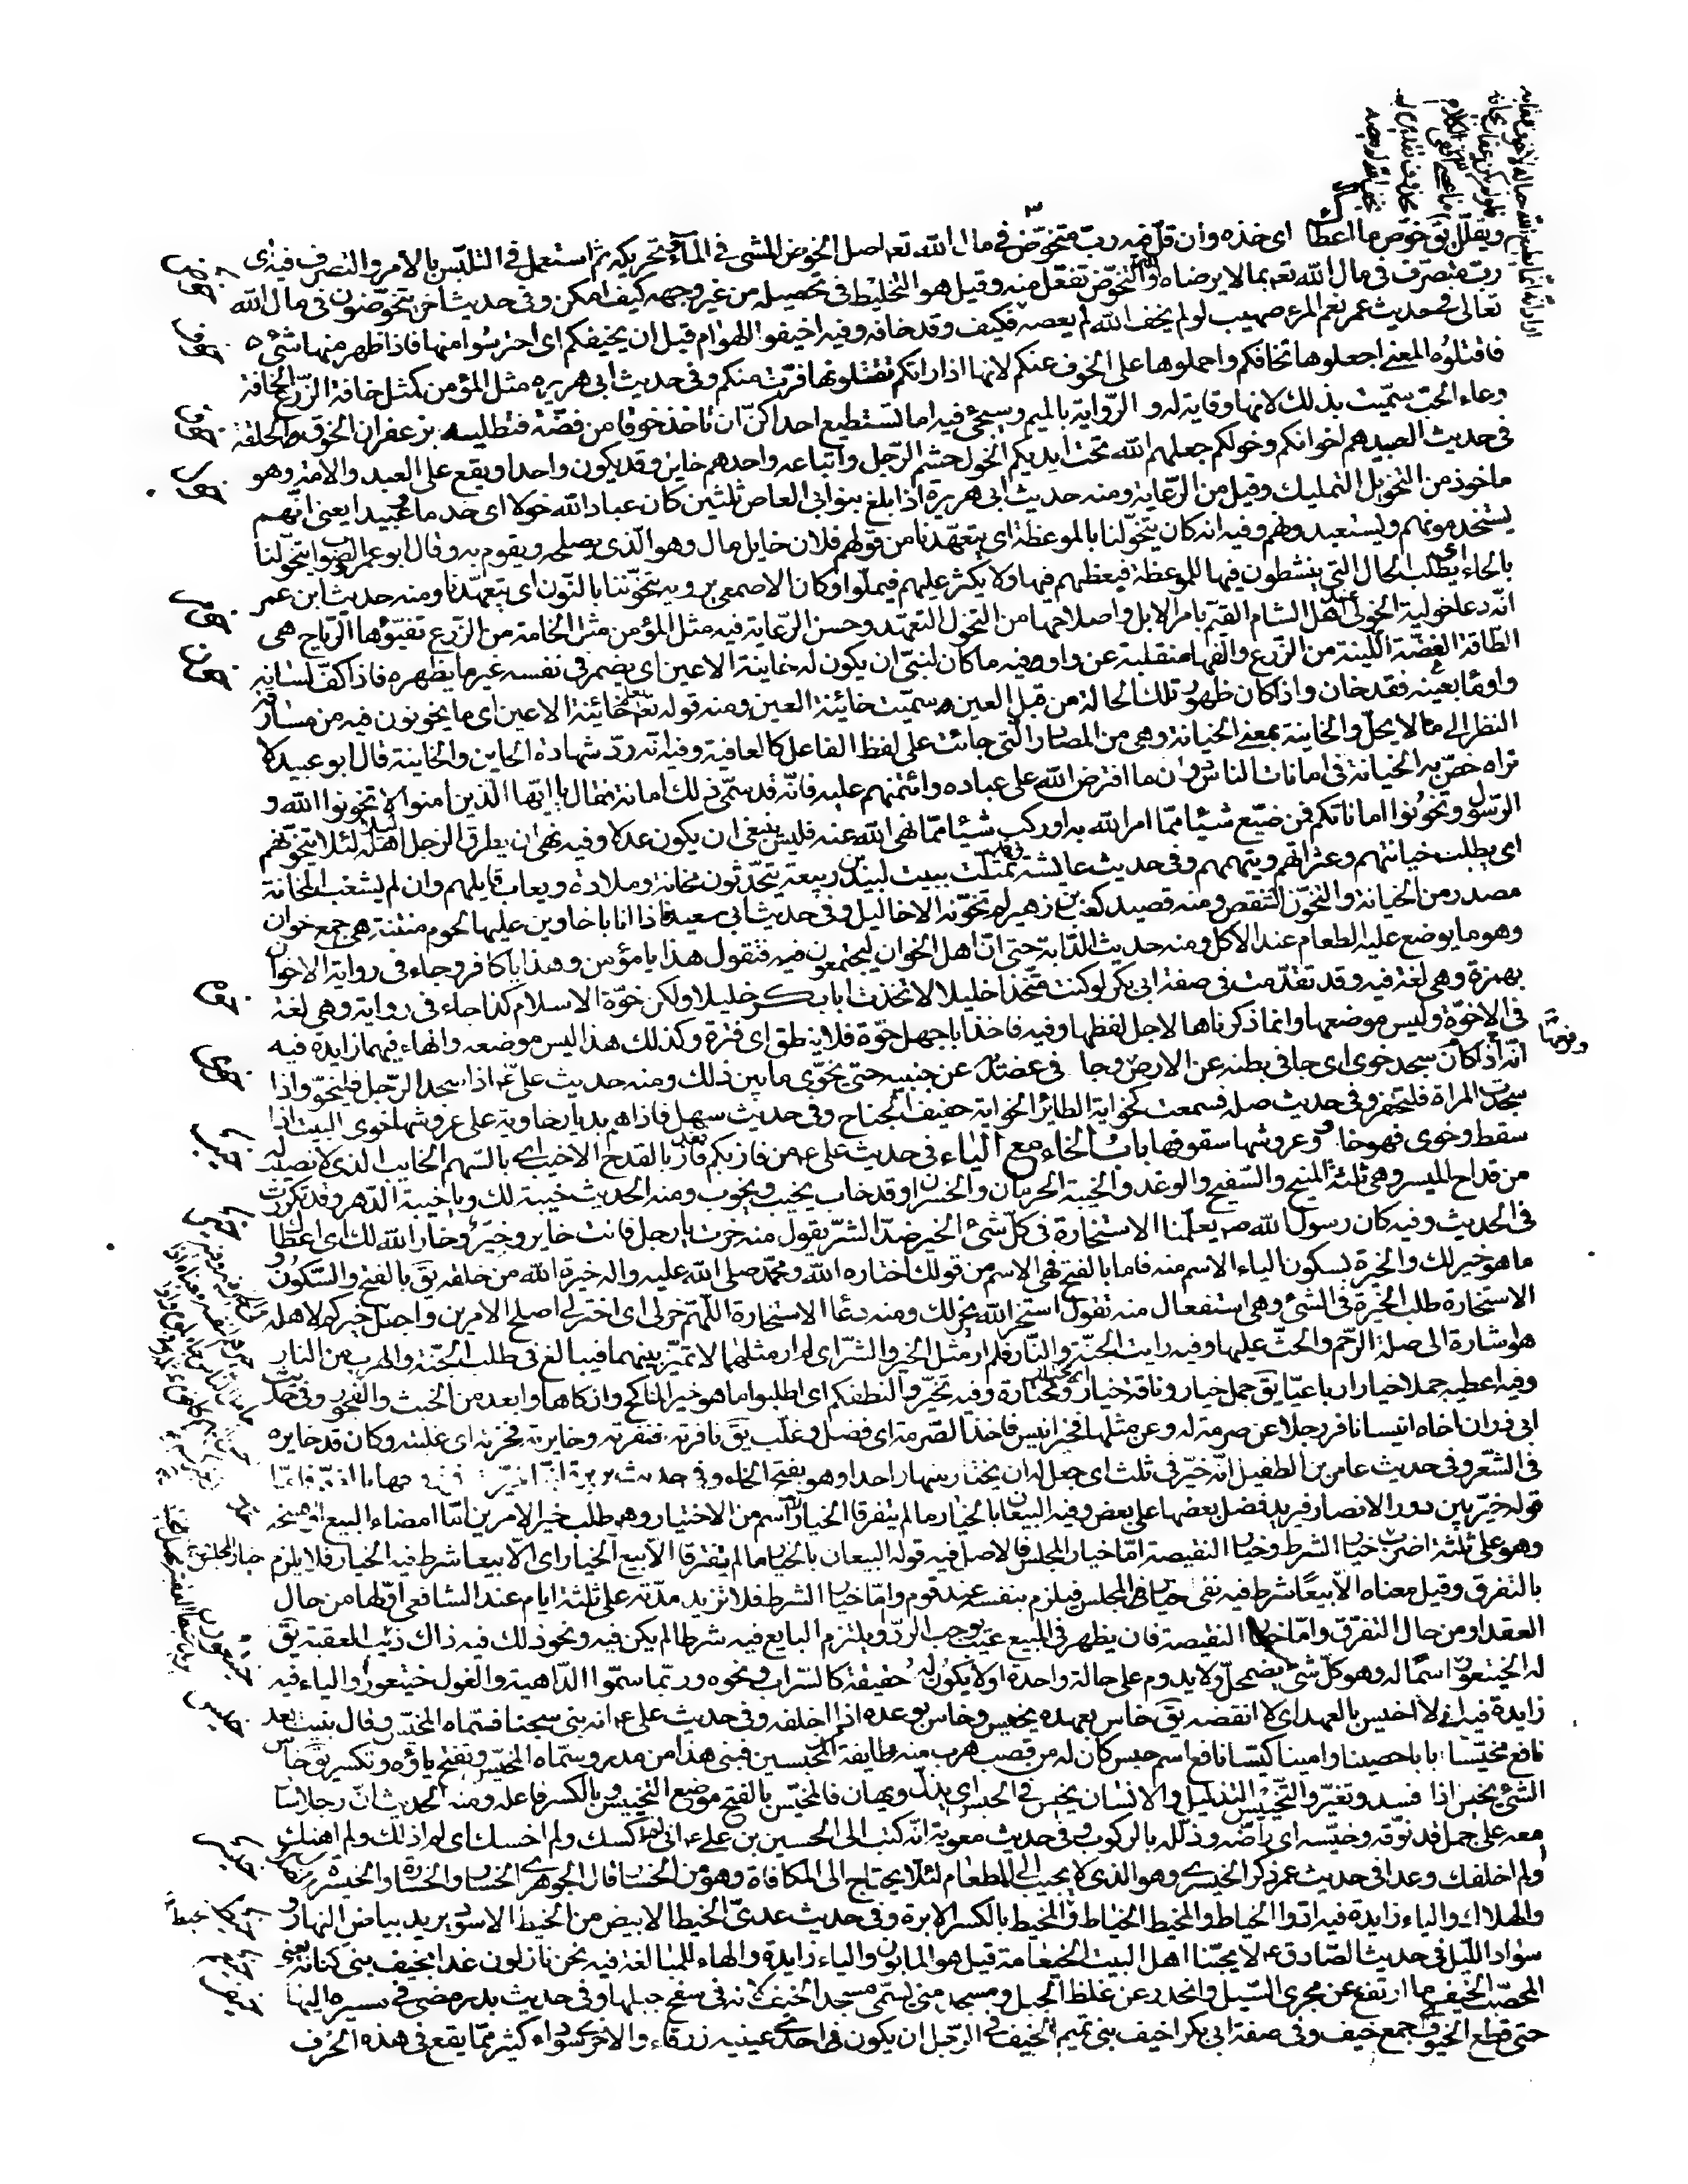 ويقلل يق خوص ما اعطاك اى خذه وان قل فيه رب متخوض فى مال الله تعه اصل الخوض المشى فى الماء وتحريكه ثم استعمل فى التلبس بالامر والتصرف فيه اى
رب متصرف فى مال الله تعه بما لا يرضاه الله والتخوض تفعل منه وقيل هو التخليط فى تحصيله من غير وجهه كيف امكن وفى حديث اخر يتخوضون فى مال الله
تعالى فى حديث عمر نعم المرء صهيب لو لم يخف الله لم يعصه فكيف وقد خافه وفيه اخيفوا الهوام قبل ان يخيفكم اى احترسوا منها فاذا ظهر منها شئ
فاقتلوه المعنى اجعلوها تخافكم واحملوها على الخوف عنكم لانها اذا راتكم تقتلونها فرت منكم وفى حديث ابى هريره مثل المؤمن كمثل خافة الزرع الخافة
وعاء الحب سميت بذلك لانها وقاية له والرواية بالميم وسيجئ فيه اما تستطيع احداكن ان تاخذ خوقا من فضة فتطليه بزعفران الخوق الحلقة
فى حديث العبيد هم اخوانكم وخولكم جعلهم الله تحت ايديكم الخول حشم الرجل واتباعه واحدهم خاين وقد يكون واحدا ويقع على العبد والامة وهو
ماخوذ من التخويل التمليك وقيل من الرعاية ومنه حديث ابى هريرة اذا بلغ بنو ابى العاص ثلثين كان عباد الله خولا اى خدما وعبيدا يعنى انهم
يستخدمونهم ويستعبدونهم وفيه انه كان يتخولنا بالموعظة اى يتعهدنا من قولهم فلان خايل مال وهو الذى يصلحه ويقوم به وقال ابو عمر والصواب يتحولنا
بالحاء اى يطلب الحال التى ينشطون فيها للموعظة فيعظهم فيها ولا يكثر عليهم فيملوا وكان الاصمعى يرويه يتخوننا بالنون اى يتعهدنا ومنه حديث ابن عمر
انه دعا خوليه الخولى عند اهل الشام القيم بامر الابل واصلاحها من التخول التعهد وحسن الرعاية فيه مثل المؤمن مثل الخامة من الزرع تفيؤها الرياح هى
الطاقة الغضة اللينة من الزرع والفها منقلبة عن واو وفيه ما كان لنبى ان يكون له خاينة الاعين اى يضمر فى نفسه غير ما يظهره فاذا كف لسانه
واومأ بعينه فقد خان واذا كان ظهور تلك الحالة من قبل العين سميت خائنة العين ومنه قوله تعه يعلم خائنة الاعين اى ما يخونون فيه من مسارقة
النظر الى ما لا يحل والخاينة بمعنى الخيانة وهى من المصادر التى جائت على لفظ الفاعل كالعافية وفيه انه رد شهادة الخاين والخاينة قال ابو عبيد لا
نراه خص به الخيانة فى امانات الناس دون ما افترض الله على عباده وائتمنهم عليه فانه قد سمى ذلك امانة فقال يا ايها الذين امنوا لا تخونوا الله و
الرسول وتخونوا اماناتكم فمن ضيع شيئا مما امر الله به او ركب شيئا مما نهى الله عنه فليس ينبغى ان يكون عدلا وفيه نهى ان يطرق الرجل اهله ليلا لئلا يتخونهم
اى يطلب خيانتهم وعثراتهم ويتهمهم وفى حديث عايشة وقد تمثلت ببيت لبيد بن ربيعة يتحدثون مخانة وملاذة ويعاب قايلهم وان لم يشغب المخانة
مصدر من الخيانة والتخون التنقص ومنه قصيد كعب بن زهير لم تخونه الاحاليل وفى حديث ابى سعيد فاذا انا باخاوين عليها لحوم منتنة هى جمع خوان
وهو ما يوضع عليه الطعام عند الاكل ومنه حديث الدابة حتى ان اهل الخوان ليجتمعون فيه فتقول هذا يا مؤمن وهذا يا كافر وجاء فى رواية الاخوان
بهمزة وهى لغة فيه وقد تقدمت فى صفة ابى بكر لو كنت متخذا خليلا لاتخذت ابا بكر خليلا ولكن خوة الاسلام كذا جاء فى رواية وهى لغة
فى الاخوة وليس موضعها وانما ذكرناها لاجل لفظها وفيه فاخذ ابا جهل خوة فلا ينطق اى فترة وكذلك هذا ليس موضعه والهاء فيهما زايدة فيه
انه اذا كان سجد خوى اى جافى بطنه عن الارض وجافى عضديه عن جنبيه حتى يخوى ما بين ذلك ومنه حديث على ع اذا سجد الرجل فليخو واذا
سجدت المراة فلتحتفز وفى حديث صلة فسمعت كخواية الطائر الخواية حفيف الجناح وفى حديث سهل فاذاهم بديار خاوية على عروشها خوى البيت اذا
سقط وخوى فهو خاو وعروشها سقوفها باب الخاء مع الياء فى حديث على ع من فاز بكم فاز بالقدح الاخيب اى بالسهم الخايب الذى لا نصيب له
من قداح الميسر وهى ثلثة المنيح والسفيح والوغد والخيبة الحرمان والخسران وقد خاب يخيب ويخوب ومنه الحديث خيبة لك ويا خيبة الدهر وقد تكررت
فى الحديث وفيه كان رسول الله ص يعلمنا الاستخارة فى كل شئ الخير ضد الشر يقول منه خرت يا رجل فانت خاير وخير وخار الله لك اى اعطاك
ما هو خير لك والخيرة بسكون الياء الاسم منه فاما بالفتح فهى الاسم من قولك اختاره الله ومحمد صلى الله عليه واله خيرة الله من خلقه يق بالفتح والسكون و
الاستخارة طلب الخيرة فى الشئ وهى استفعال منه تقول استخر الله يخر لك ومنه دعاء الاستخارة اللهم خر لى اى اختر لى اصلح الامرين واجعل خيركم لاهله
هو اشارة الى صلة الرحم والحث عليها وفيه رايت الجنة والنار فلم ار مثل الخير والشر اى لم ار مثلهما لا تميز بينهما فيبالغ فى طلب الجنة والهرب من النار
وفيه اعطيه جملا خيارا رباعيا يق جمل خيار وناقة خيار اى مختار ومختارة وفيه تخيروا لنطفكم اى اطلبوا ما هو خير المناكح وازكاها وابعد من الخبث والفجور وفى حديث
ابى ذر ان اخاه انيسا نافر رجلا عن صرمة له وعن مثلها فخير انيس فاخذ الصرمة اى فضل وغلب يق نافرته فنفرته وخايرته فخرته اى غلبته وكان قد خايره
فى الشعر وفى حديث عامر بن الطفيل انه خير فى ثلث اى جعل له ان يختار منها واحدا وهو بفتح الخاء وفى حديث بريرة انها خيرت فى زوجها بالضم فاما
قوله خير بين دور الانصار فيريد فضل بعضها على بعض وفيه البيعان بالخيار ما لم يتفرقا الخيار اسم من الاختيار وهو طلب خير الامرين اما امضاء البيع او فسخه
وهو على ثلثة اضرب خيار المجلس وخيار الشرط وخيار النقيصة اما خيار المجلس فالاصل فيه قوله البيعان بالخيار ما لم يتفرقا الا بيع الخيار اى الا بيعا شرط فيه الخيار فلا يلزم
بالتفرق وقيل معناه الا بيعا شرط فيه نفى خيار المجلس فيلزم بنفسه عند قوم واما خيار الشرط فلا تزيد مدته على ثلثة ايام عند الشافعى اولها من حال
العقد او من حال التفرق واما خيار النقيصة فان يظهر فى المبيع عيب يوجب الرد ويلتزم البايع فيه شرطا لم يكن فيه ونحو ذلك فيه ذاك ذئب العقبة يق
له الخيتعور اسما له وهو كل شئ يضمحل ولا يدوم على حالة واحدة او لا يكون له حقيقة كالسراب ونحوه وربما سموا الداهية والغول خيتعورا والياء فيه
زايدة فيه انى لا اخيس بالعهد اى لا انقضه يق خاس بعهده يخيس وخاس بوعده اذا اخلفه وفى حديث على ع انه بنى سجنا فسماه المخيس وقال بنيت بعد
نافع مخيسا بابا حصينا وامينا كيسا نافع اسم حبس كان له من قصب هرب منه طايفة المحبسين فبنى هذا من مدر وسماه المخيس وتفتح ياؤه وتكسر يق خاس
الشئ يخيس اذا فسد وتغير والتخييس التذليل والانسان يخيس فى الحبس اى يذل ويهان فالمخيس بالفتح موضع التخييس وبالكسر فاعله ومنه الحديث ان رجلا سا
معه على جمل قد نوقه وخيسه اى راضه وذلله بالركوب وفى حديث معوية انه كتب الى الحسين بن على ع انى لم اكسك ولم اخسك اى لم اذلك ولم اهنك
ولم اخلفك وعدا فى حديث عمر ذكر الخيسرى وهو الذى لا يجيب الى الطعام لئلا يحتاج الى المكافاة وهو من الخسار قال الجوهرى الخسار والخسارة والخيسرى
والهلاك والياء زايدة فيه ادوا الخياط والمخيط الخياط والخيط بالكسر الابرة وفى حديث عدى الخيط الابيض من الخيط الاسود يريد بياض النهار و
سواد الليل فى حديث الصادق ع لا يحبنا اهل البيت الخيعامة قيل هو المابون والياء زايدة والهاء للمبالغة فيه نحن نازلون غدا بخيف بنى كنانة يعنى
المحصب الخيف ما ارتفع عن مجرى السيل وانحدر عن غلظ الجبل ومسجد منى يسمى مسجد الخيف لانه فى سفح جبلها وفى حديث بدر مضى فى مسيره اليها
حتى قطع الخيوف جمع خيف وفى صفة ابى بكر اخيف بنى تميم الخيف فى الرجل ان يكون احدى عينيه زرقاء والاخرى سوداء كثير مما يقع فى هذه الحرف